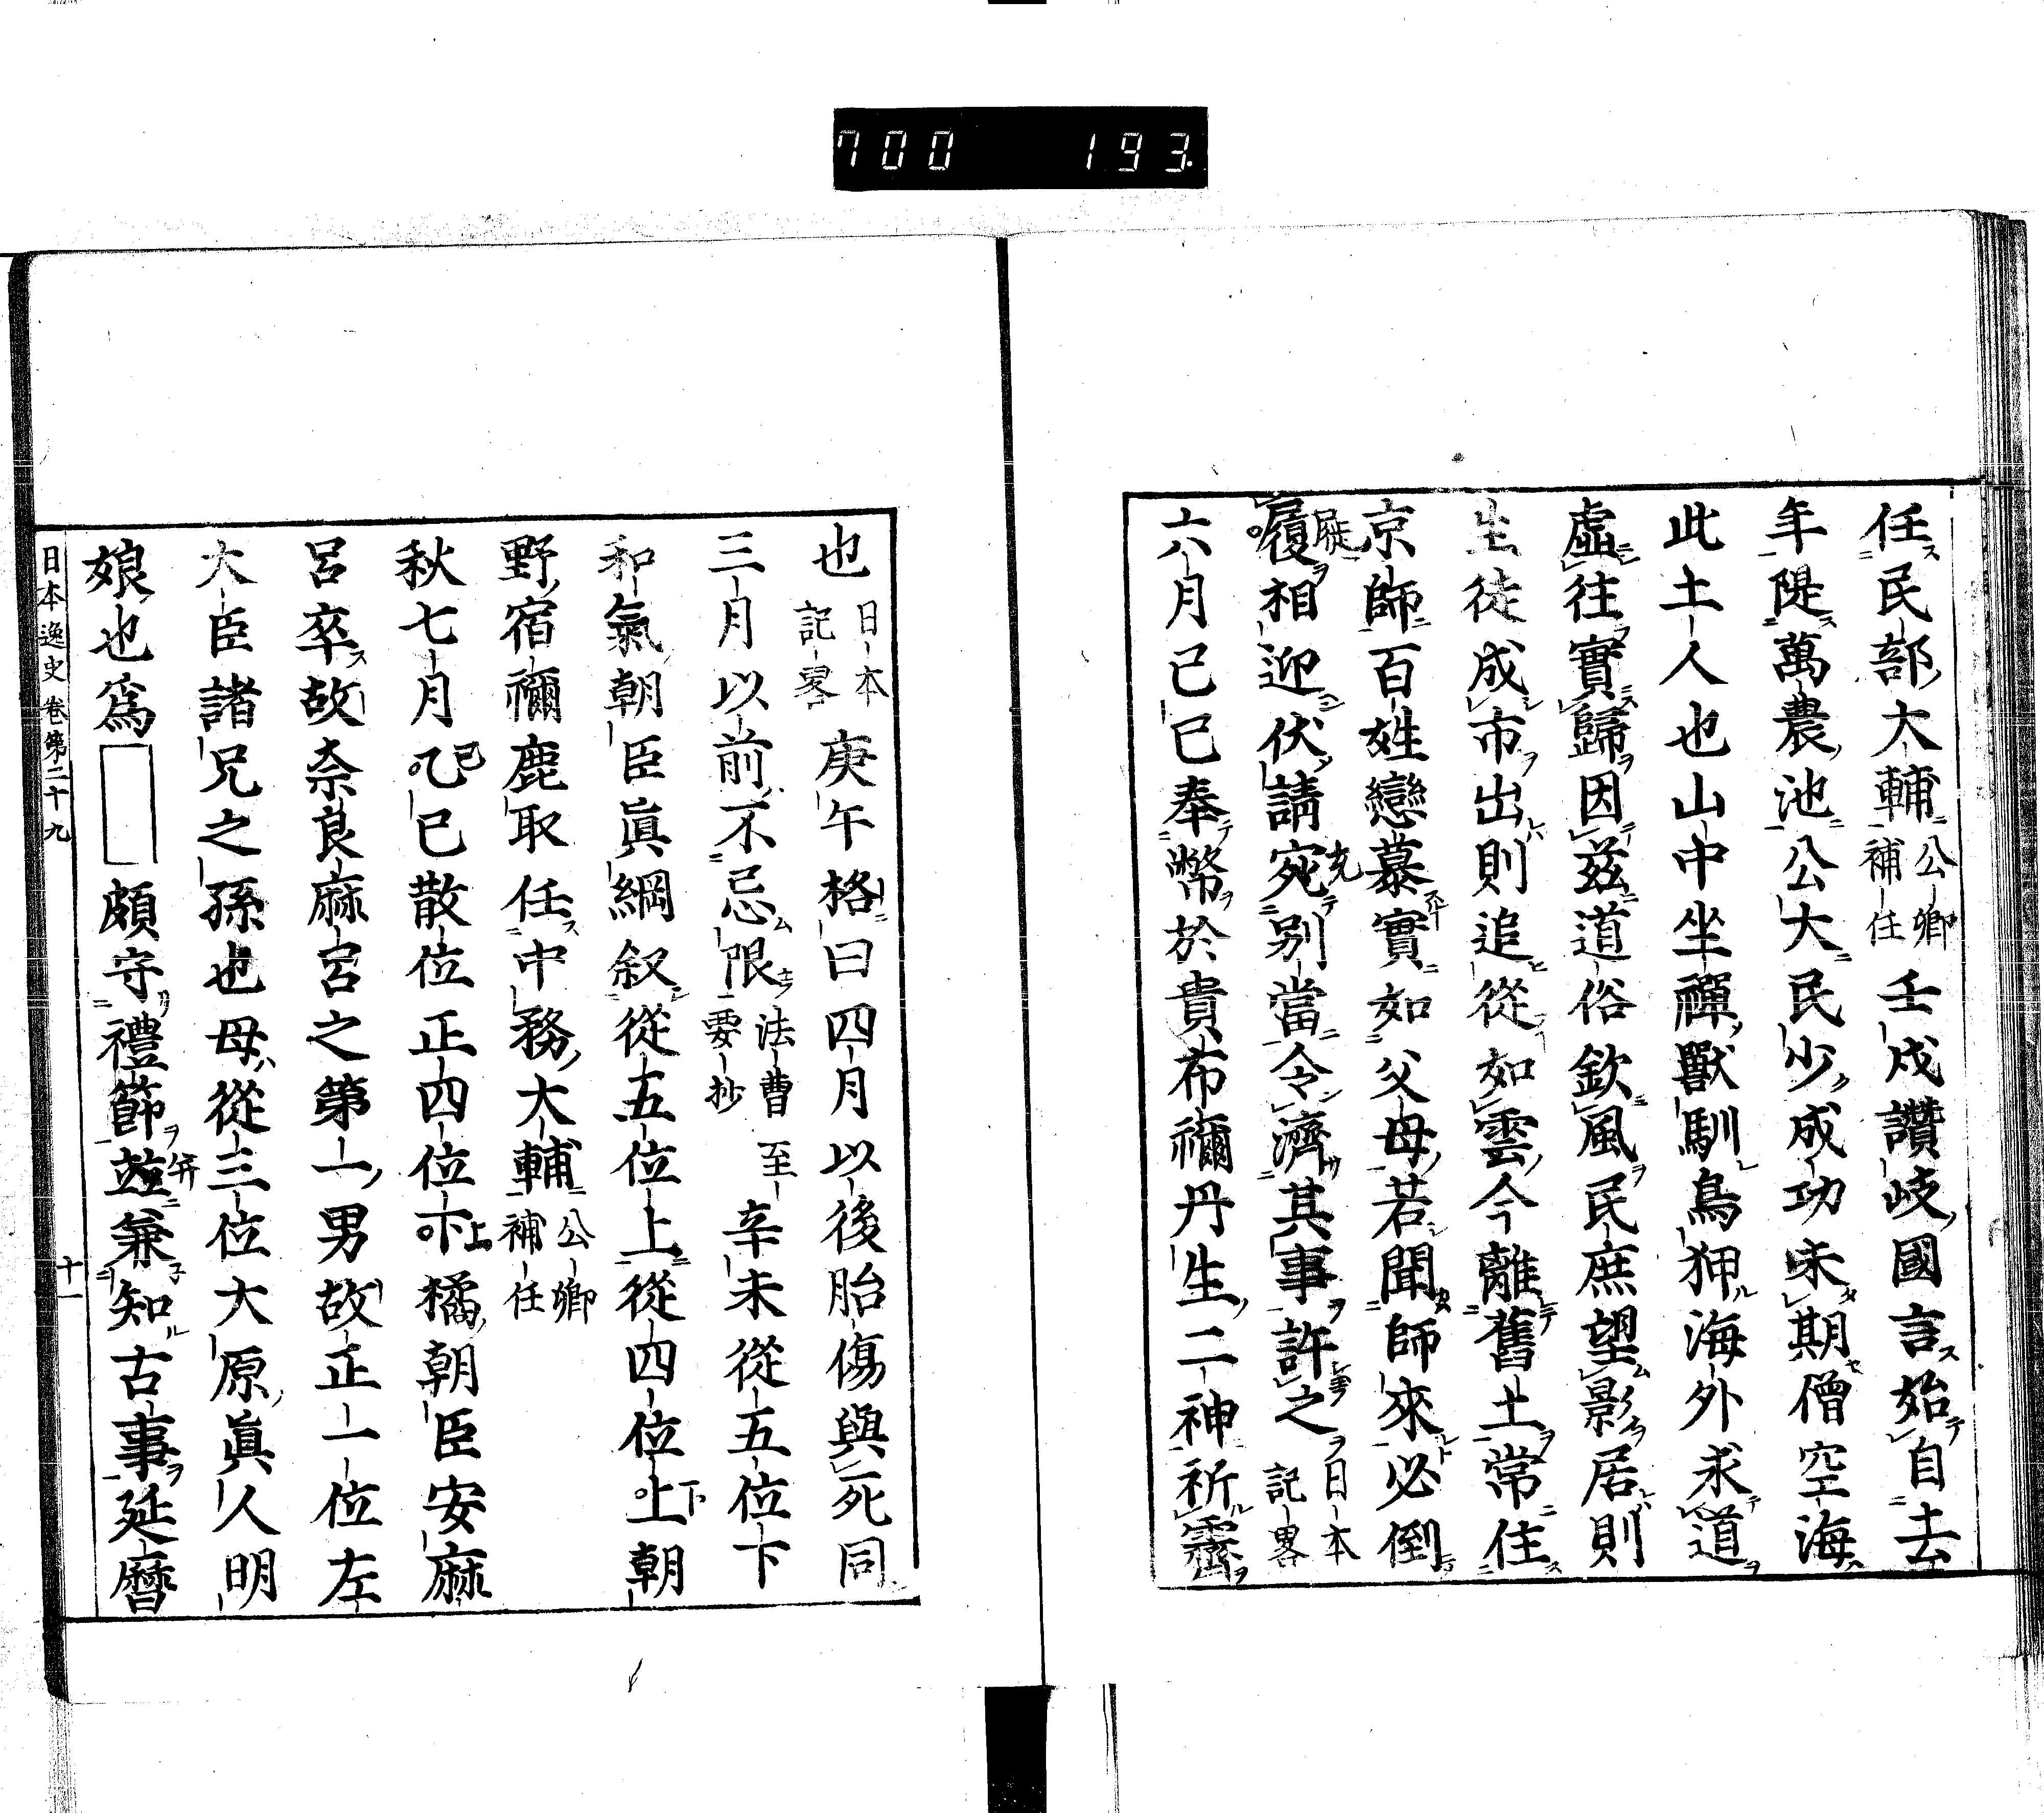 700 193
任民部大輔公卿補任壬戌讃岐國言始自去
年隄萬農池公大民少成功未期僧空海
此土人也山中坐禪獸馴鳥狎海外求道
虛往實歸因茲道俗欽風民庶望影居則
生徒成市出則追從如雲今離舊土常住
京師百姓戀慕實如父母若聞師來必倒
履相迎伏請宛別當令濟其事許之日本記畧
六月己巳奉幣於貴布禰丹生二神祈霽
也日本記畧庚午格曰四月以後胎傷與死同
三月以前不忌限法曹至要抄辛未從五位下
和氣朝臣眞綱叙從五位上從四位上朝
野宿禰鹿取任中務大輔公卿補任
秋七月乙巳散位正四位下橘朝臣安麻
呂卒故奈良麻呂之第一男故正一位左
大臣諸兄之孫也母從三位大原眞人明
娘也爲頗守禮節竝兼知古事延曆
日本逸史卷第二十九 十一